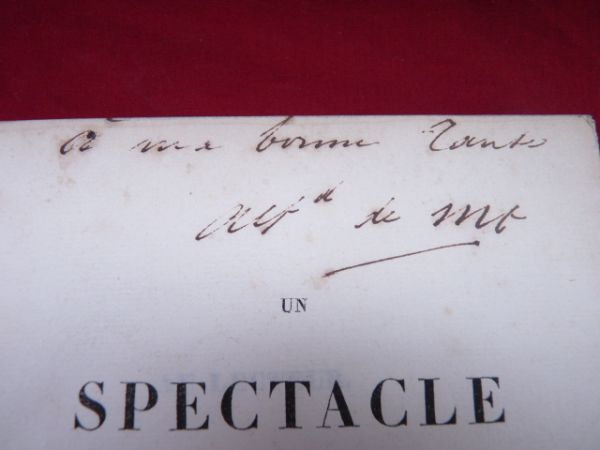 a ma bonne Tante
Alfd de Mt
UN
SPECTACLE